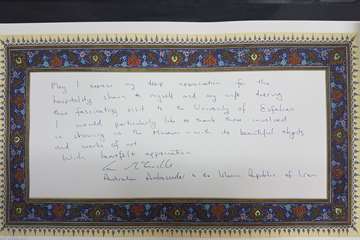 May I express my deep appreciation for the
hospitality shown to myself and my wife during
our fascinating visit to the University of Esfahan
I would particularly like to thank those involved
in showing us the Museum - with its beautiful objects
and works of art
With heartfelt appreciation
Australian Ambassador to the Islamic Republic of Iran